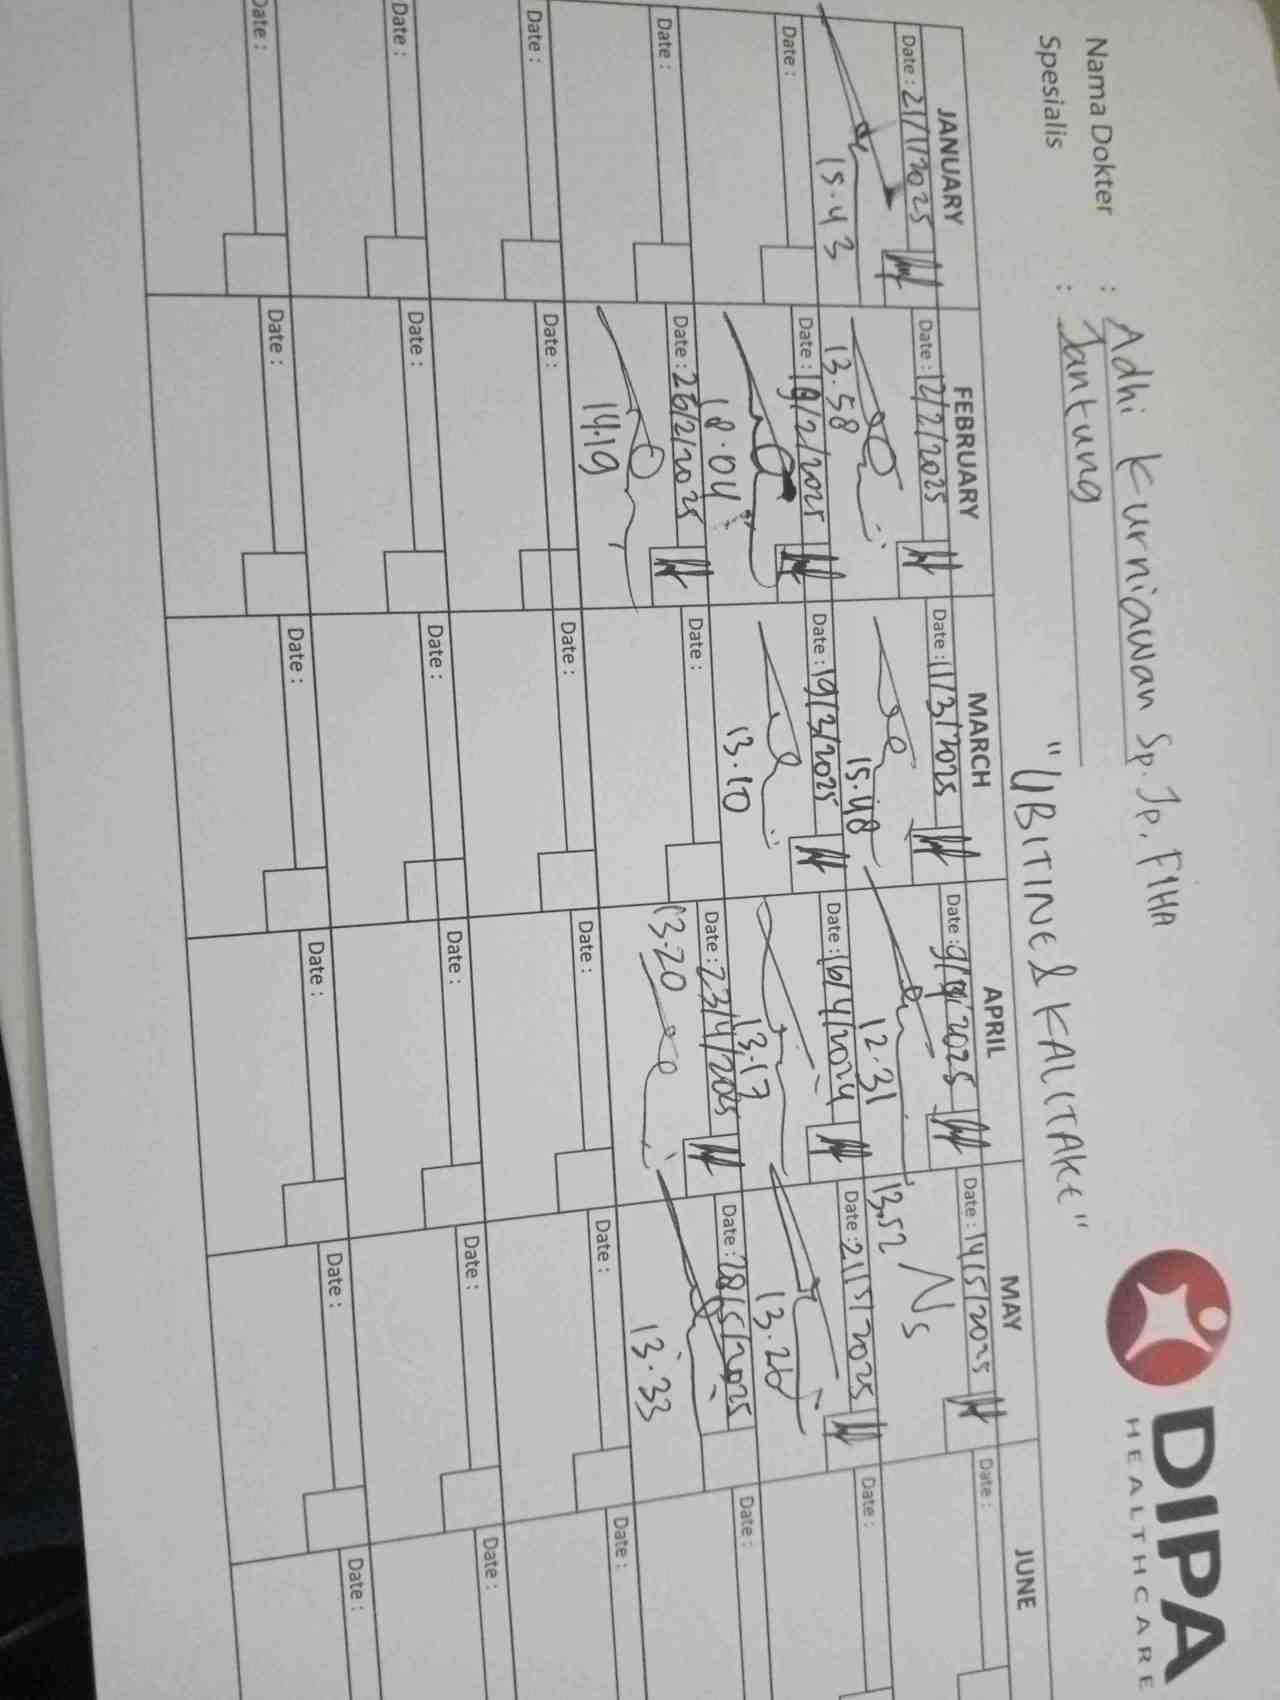 DIPA
HEALTHCARE
Nama Dokter : Adhi Kurniawan Sp. Jp. FIHA
Spesialis : Jantung
"UBITINE & KALITAKE"
JANUARY FEBRUARY MARCH APRIL MAY JUNE
Date : 21/1/2025 Date : 12/2/2025 Date : 11/3/2025 Date : 9/4/2025 Date : 14/5/2025 Date :
15.43 13.58 15.48 12.31 13.52 Ns
Date : Date : 19/2/2025 Date : 19/3/2025 Date : 16/4/2024 Date : 21/5/2025 Date :
18.04 13.10 13.17 13.26
Date : Date : 26/2/2025 Date : Date : 23/4/2025 Date : 28/5/2025 Date :
14.19 13.20 13.33
Date : Date : Date : Date : Date : Date :
Date : Date : Date : Date : Date : Date :
Date : Date : Date : Date : Date : Date :